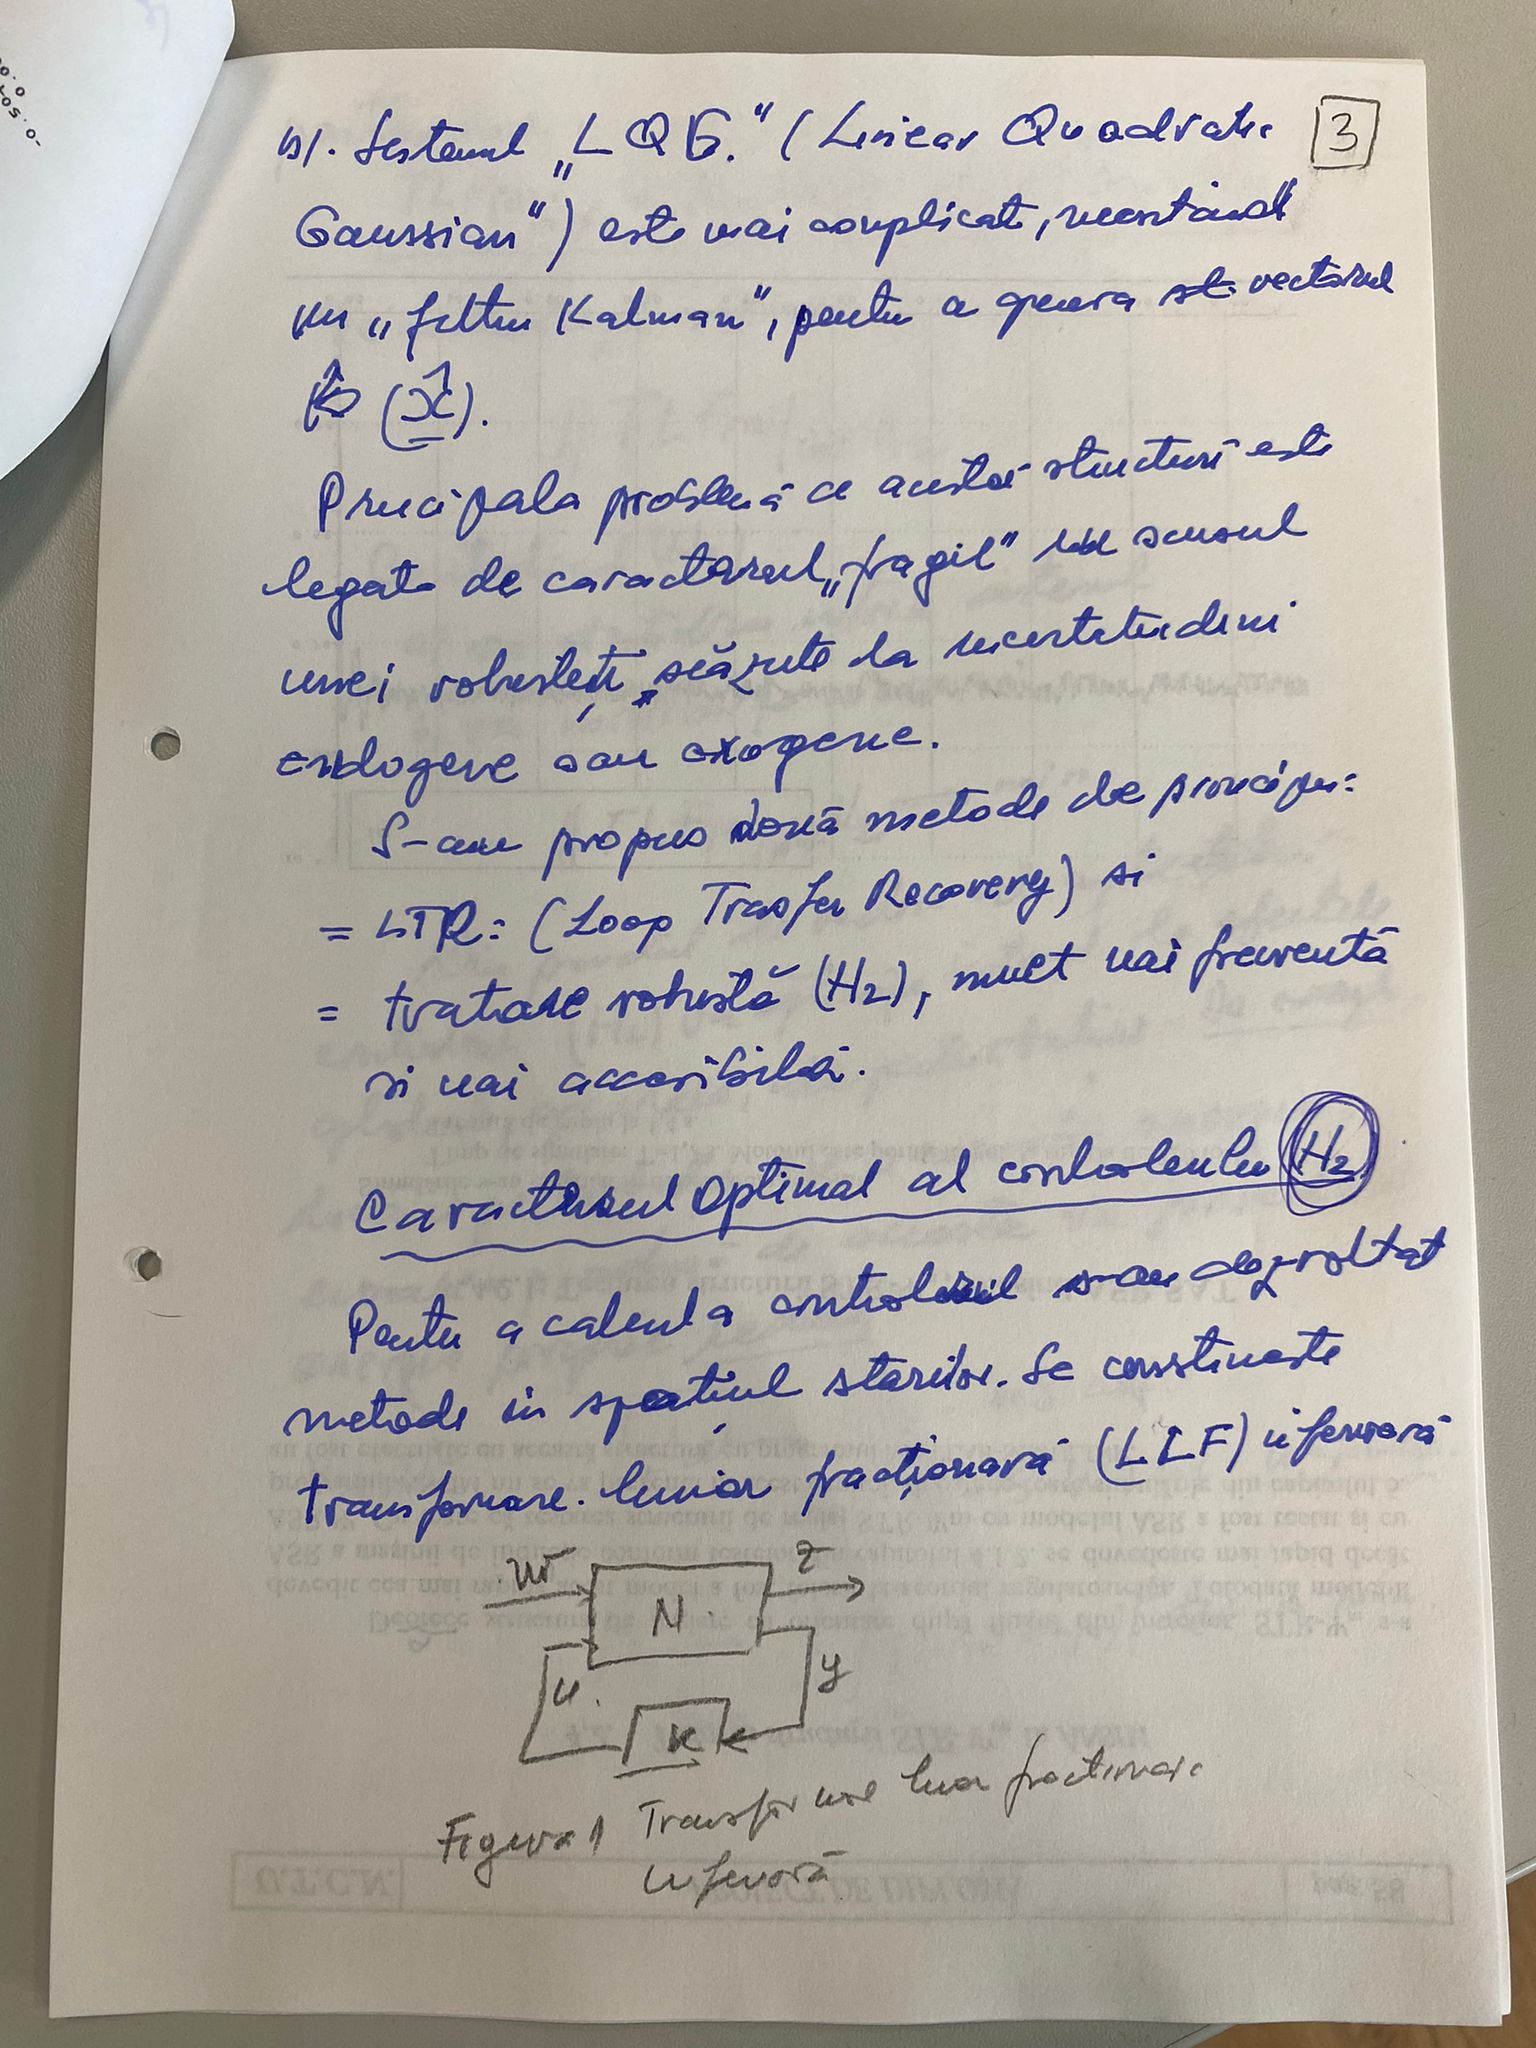 3
b/. Sistemul „LQG." (Linear Quadratic
Gaussian") este mai complicat, necesitând
un „filtru Kalman", pentru a genera vectorul
(x̂).
Principala problemă a acestei structuri este
legată de caracterul „fragil" în sensul
unei robusteți scăzute la incertitudini
endogene sau exogene.
S-au propus două metode de principiu:
= LTR: (Loop Trasfer Recovery) si
= tratare robustă (H2), mult mai frecventă
si mai accesibilă.
Caracterul Optimal al controlerului H2
Pentru a calcula controlerul s-au dezvoltat
metode in spațiul starilor. Se construieste
transformare. liniar fracționară (LLF) inferioară
w z
N.
u. y
K
Figura 1 Transformare liniar fractionara
inferioară
U.T.C.N. PROIECT DE DIPLOMA pag. 58